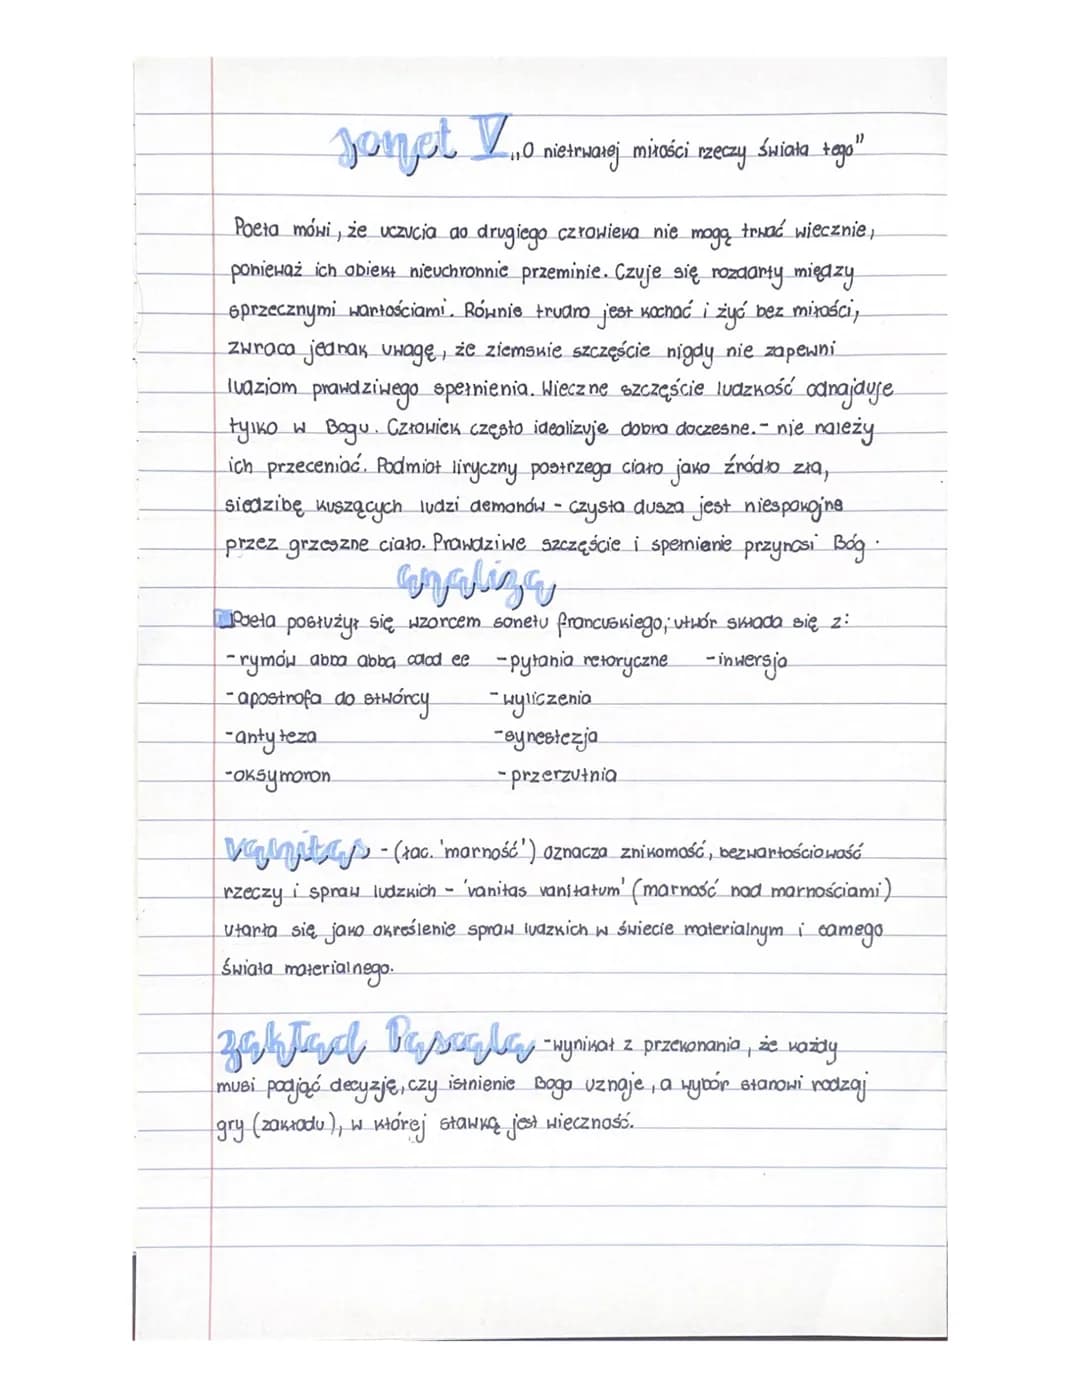 Sonet V „O nietrwałej miłości rzeczy świata tego"
Poeta mówi, że uczucia do drugiego człowieka nie mogą trwać wiecznie,
ponieważ ich obiekt nieuchronnie przeminie. Czuje się rozdarty między
sprzecznymi wartościami. Równie trudno jest kochać i żyć bez miłości,
zwraca jednak uwagę, że ziemskie szczęście nigdy nie zapewni
ludziom prawdziwego spełnienia. Wieczne szczęście ludzkość odnajduje
tylko w Bogu. Człowiek często idealizuje dobra doczesne. - nie należy
ich przeceniać. Podmiot liryczny postrzega ciało jako źródło zła,
siedzibę kuszących ludzi demonów - czysta dusza jest niespokojna
przez grzeszne ciało. Prawdziwe szczęście i spełnienie przynosi Bóg.
analiza
Poeta posłużył się wzorcem sonetu francuskiego; utwór składa się z:
-rymów abba abba cdcd ee -pytania retoryczne -inwersja
-apostrofa do stwórcy -wyliczenia
-antyteza -synestezja
-oksymoron -przerzutnia
vanitas - (łac. 'marność') oznacza znikomość, bezwartościowość
rzeczy i spraw ludzkich - 'vanitas vanitatum' (marność nad marnościami)
utarła się jako określenie spraw ludzkich w świecie materialnym i samego
świata materialnego.
zakład Pascala -wynikał z przekonania, że każdy
musi podjąć decyzję, czy istnienie Boga uznaje, a wybór stanowi rodzaj
gry (zakładu), w której stawką jest wieczność.